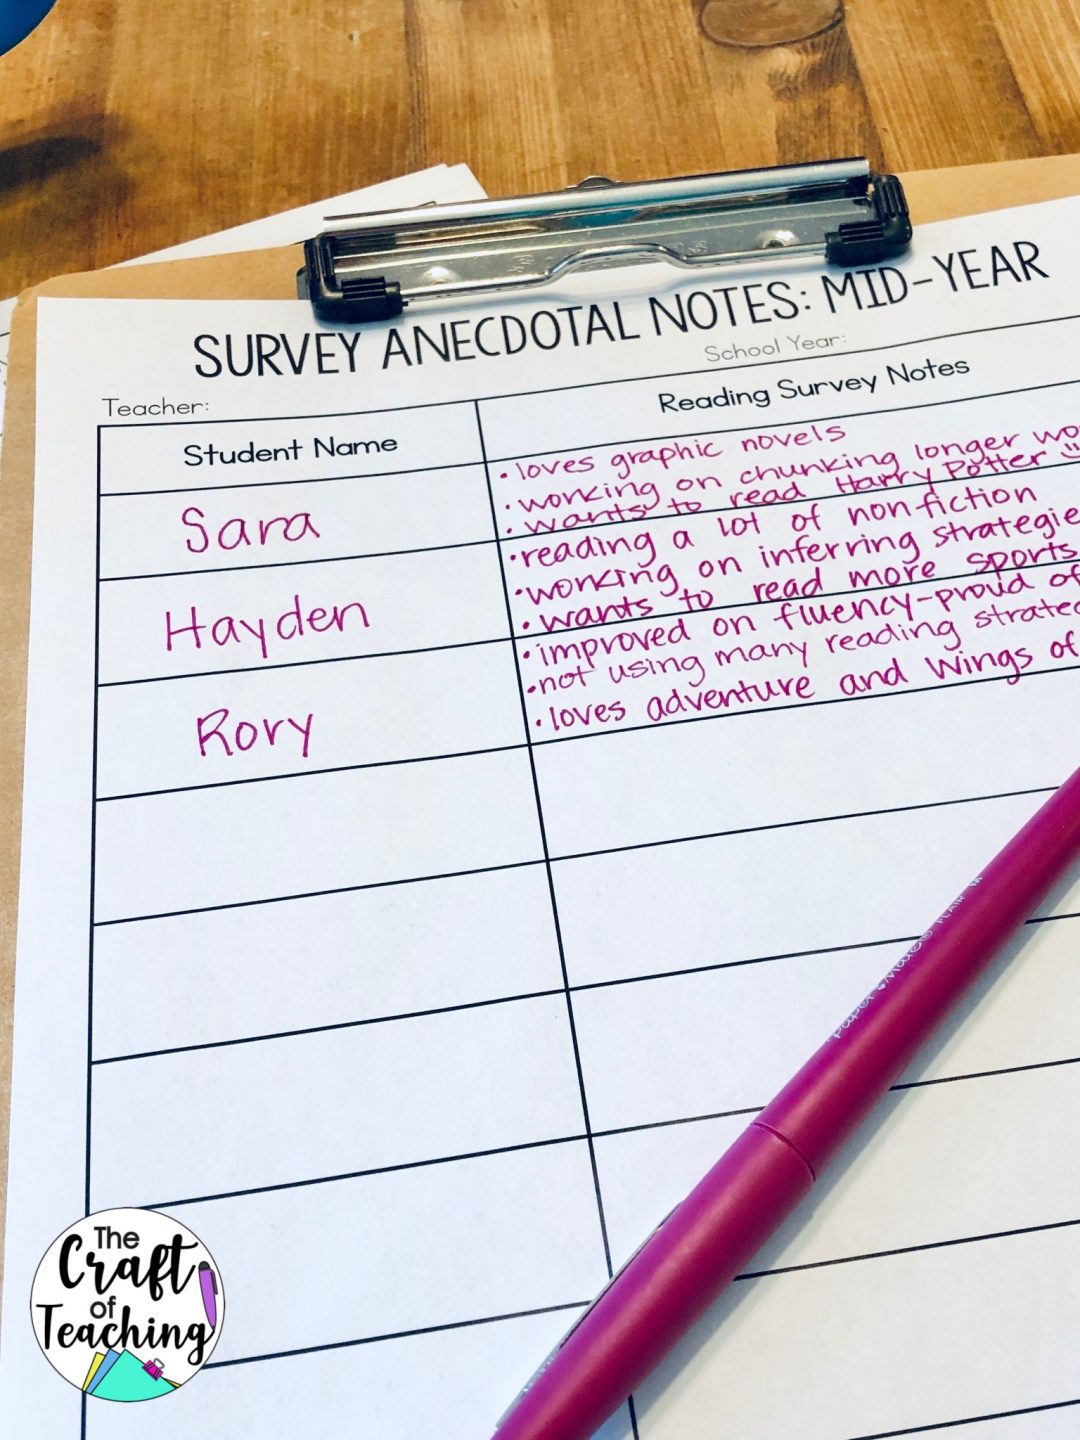 SURVEY ANECDOTAL NOTES: MID-YEAR
Teacher:
School Year:
Student Name
Reading Survey Notes
Sara
• loves graphic novels
• working on chunking longer
• wants to read Harry Potter
Hayden
• reading a lot of nonfiction
• working on inferring
• wants to read more sports
Rory
• improved on fluency-proud of
• not using many reading
• loves adventure and Wings of
Paper Mate FLAIR M
The
Craft
of
Teaching